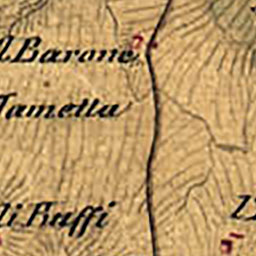 Barone
Tametta
li Buffi